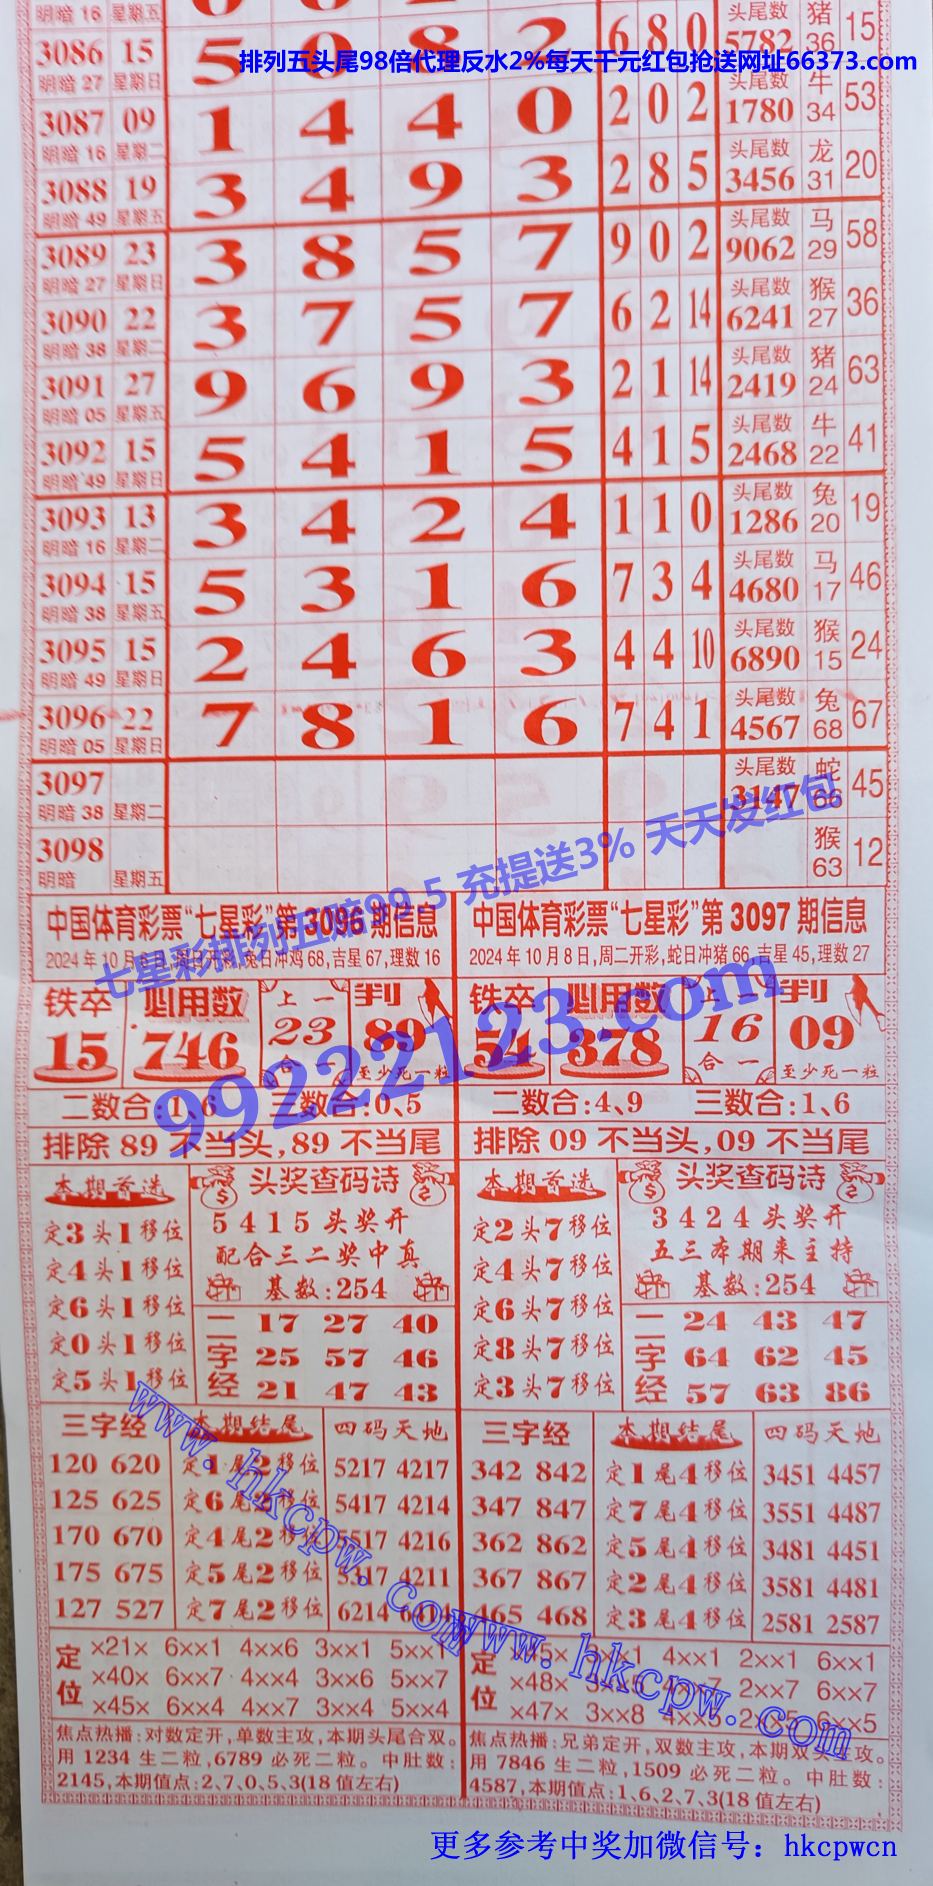 明暗 16 星期五
头尾数 猪
3086 15 5 0 8 2 6 8 0 5782 36 15
明暗 27 星期日
排列五头尾98倍代理反水2%每天千元红包抢送网址66373.com
头尾数 牛
3087 09 1 4 4 0 2 0 2 1780 34 53
明暗 16 星期二
头尾数 龙
3088 19 3 4 9 3 2 8 5 3456 31 20
明暗 49 星期五
头尾数 马
3089 23 3 8 5 7 9 0 2 9062 29 58
明暗 27 星期日
头尾数 猴
3090 22 3 7 5 7 6 2 14 6241 27 36
明暗 38 星期二
头尾数 猪
3091 27 9 6 9 3 2 1 14 2419 24 63
明暗 05 星期五
头尾数 牛
3092 15 5 4 1 5 4 1 5 2468 22 41
明暗 49 星期日
头尾数 兔
3093 13 3 4 2 4 1 1 0 1286 20 19
明暗 16 星期二
头尾数 马
3094 15 5 3 1 6 7 3 4 4680 17 46
明暗 38 星期五
头尾数 猴
3095 15 2 4 6 3 4 4 10 6890 15 24
明暗 49 星期日
头尾数 兔
3096 22 7 8 1 6 7 4 1 4567 68 67
明暗 05 星期日
头尾数 蛇
3097 3147 66 45
明暗 38 星期二
猴
3098 63 12
明暗 星期五
七星彩排列五赔99.5 充提送3% 天天发红包
99222123.com
中国体育彩票“七星彩”第 3096 期信息
2024 年 10 月 6 日,周日开彩,兔日冲鸡 68,吉星 67,理数 16
铁卒 必用数 上一 判
15 746 23 89
合一 至少死一粒
二数合:1、6 三数合:0、5
排除 89 不当头,89 不当尾
本期首选 头奖查码诗
定3头1移位 5415头奖开
定4头1移位 配合三二奖中真
定6头1移位 基数:254
定0头1移位
定5头1移位
二字经
17 27 40
25 57 46
21 47 43
三字经 本期结尾 四码天地
120 620 定1尾2移位 5217 4217
125 625 定6尾2移位 5417 4214
170 670 定4尾2移位 5517 4216
175 675 定5尾2移位 5317 4211
127 527 定7尾2移位 6214 6414
定位
×21× 6××1 4××6 3××1 5××1
×40× 6××7 4××4 3××6 5××7
×45× 6××4 4××7 3××4 5××4
焦点热播:对数定开,单数主攻,本期头尾合双。
用 1234 生二粒,6789 必死二粒。中肚数:
2145,本期值点:2、7、0、5、3(18 值左右)
中国体育彩票“七星彩”第 3097 期信息
2024 年 10 月 8 日,周二开彩,蛇日冲猪 66,吉星 45,理数 27
铁卒 必用数 上一 判
54 378 16 09
合一 至少死一粒
二数合:4、9 三数合:1、6
排除 09 不当头,09 不当尾
本期首选 头奖查码诗
定2头7移位 3424头奖开
定4头7移位 五三本期来主持
定6头7移位 基数:254
定8头7移位
定3头7移位
二字经
24 43 47
64 62 45
57 63 86
三字经 本期结尾 四码天地
342 842 定1尾4移位 3451 4457
347 847 定7尾4移位 3551 4487
362 862 定5尾4移位 3481 4451
367 867 定2尾4移位 3581 4481
465 468 定3尾4移位 2581 2587
定位
4××1 2××1 6××1
×48× 2××7 6××7
×47× 3××8 4××5 2××5 6××5
焦点热播:兄弟定开,双数主攻,本期双头主攻。
用 7846 生二粒,1509 必死二粒。中肚数:
4587,本期值点:1、6、2、7、3(18 值左右)
www.hkcpw.com
www.hkcpw.com
更多参考中奖加微信号：hkcpwcn